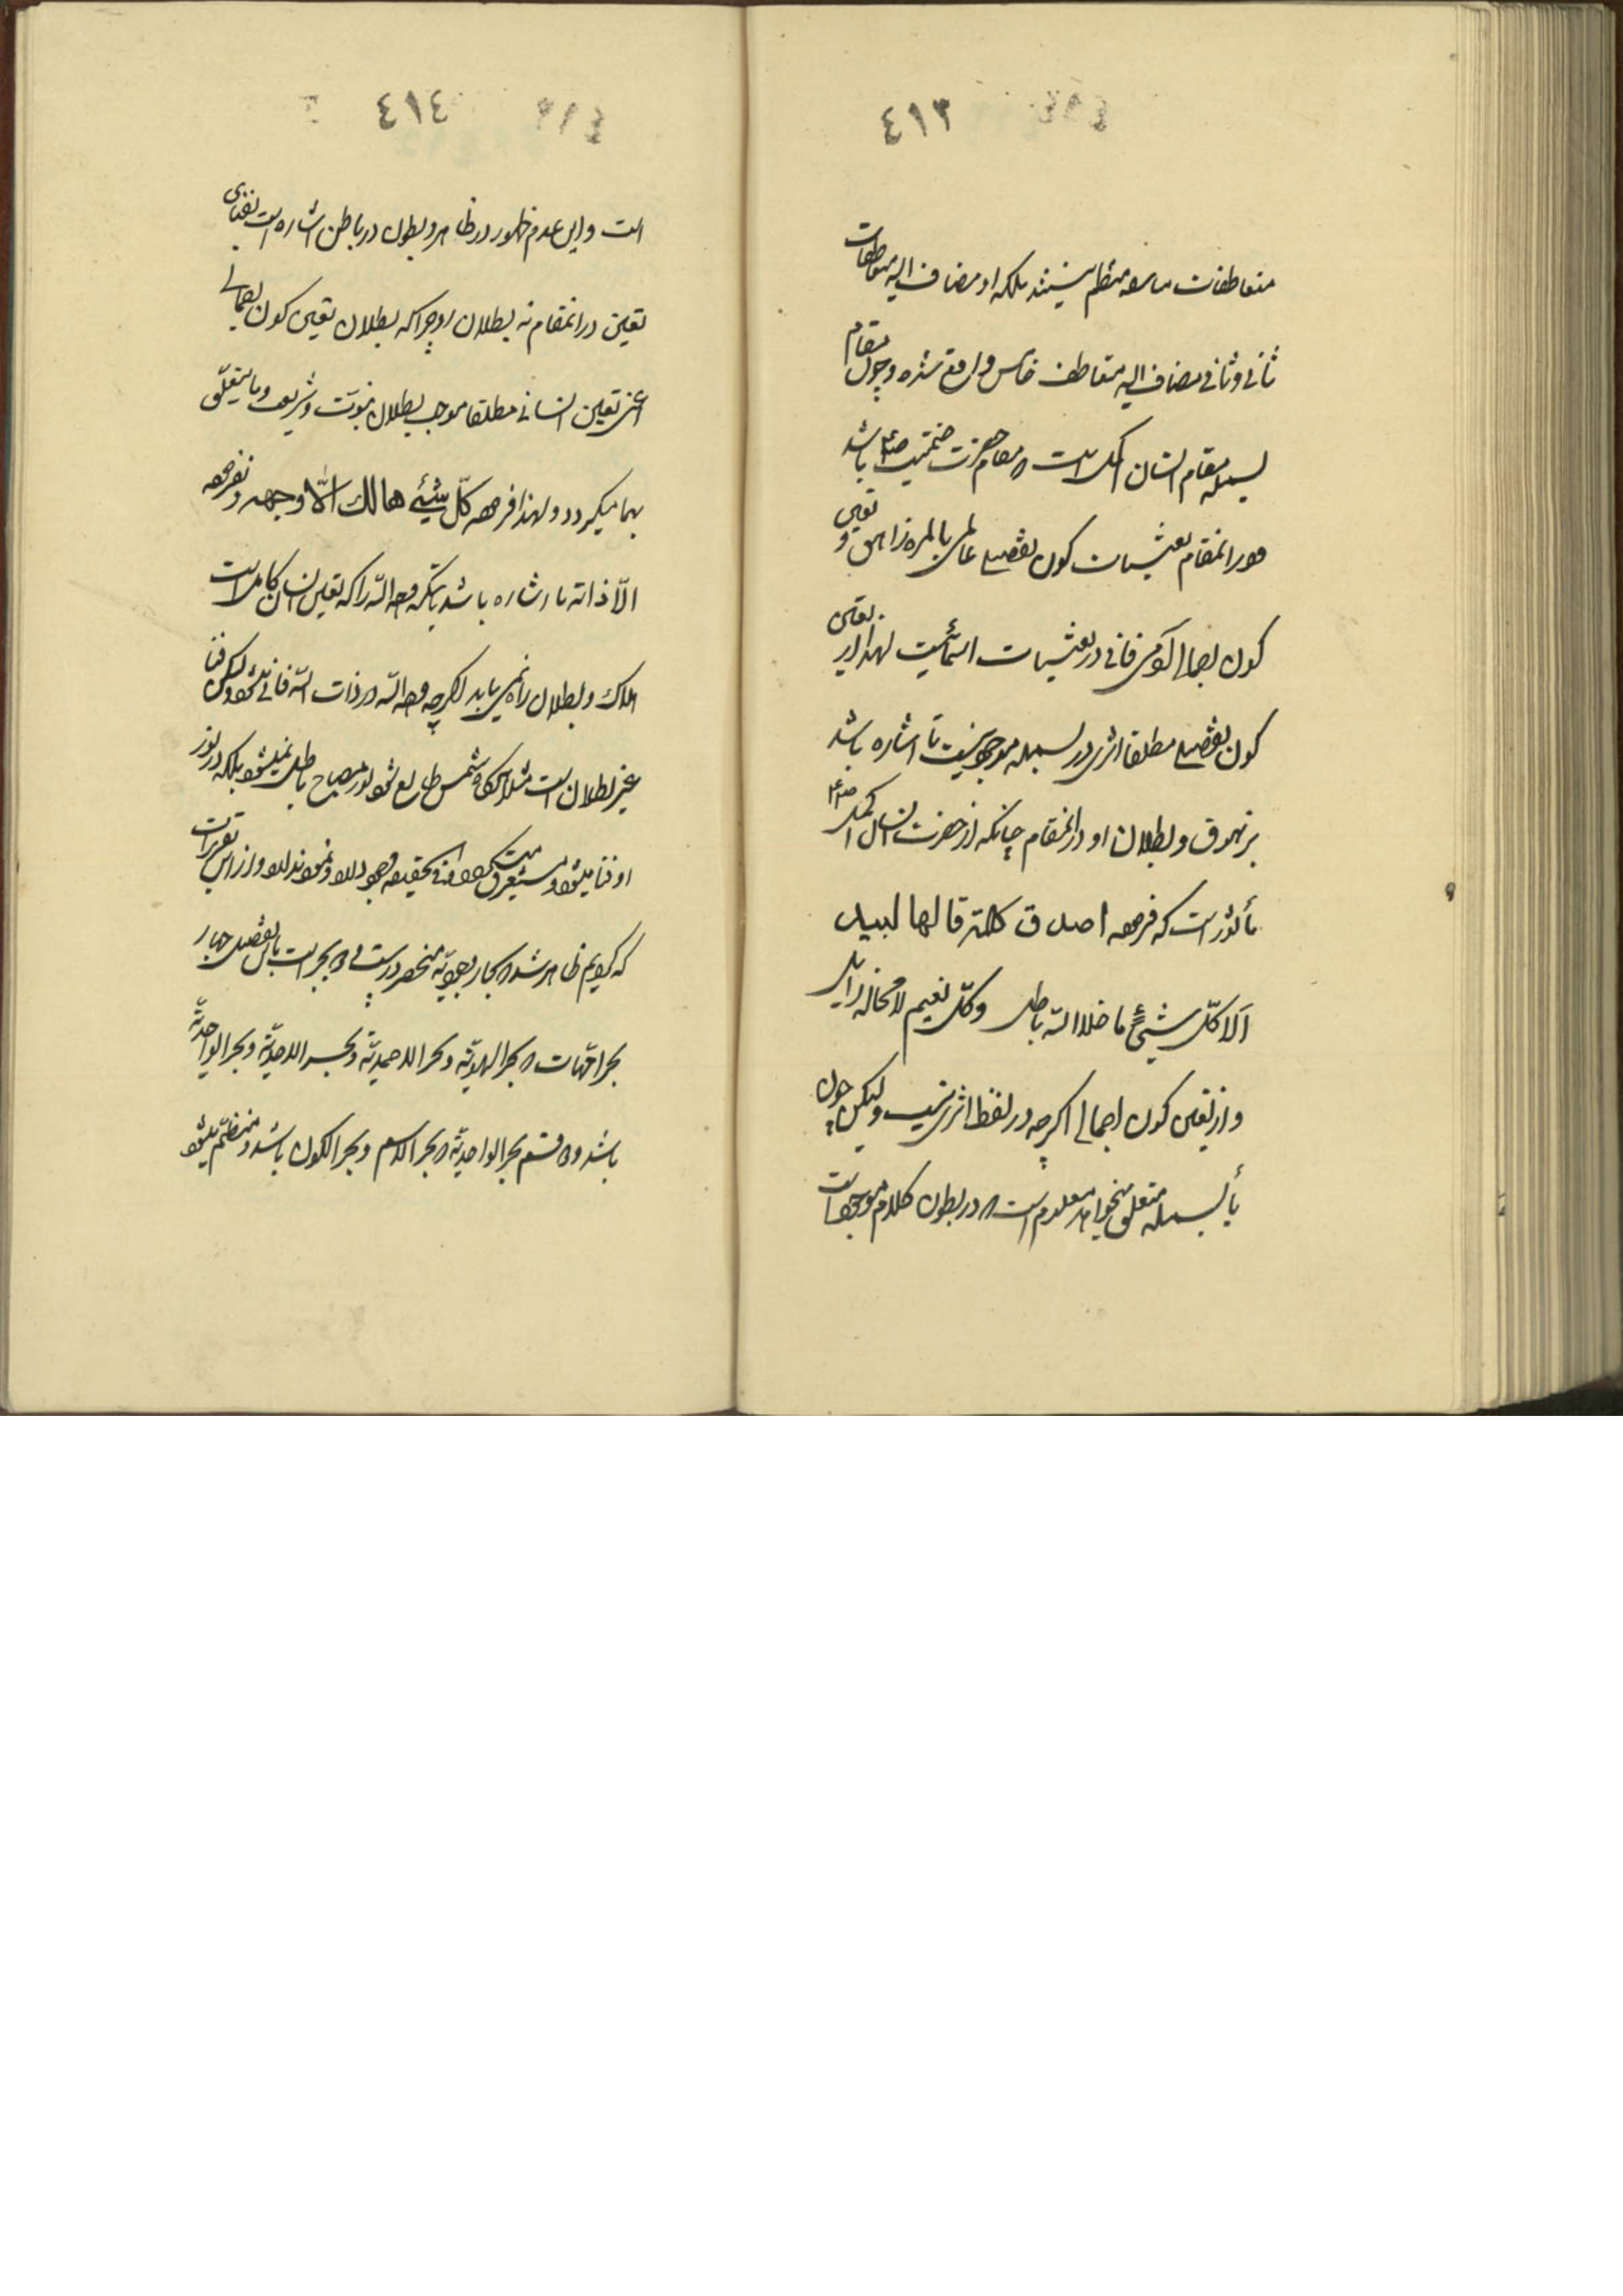 ٤١٣
متعاطفات منتظم نیستند بلکه او مضاف الیه متعاطفات
ثانی و ثانی مضاف الیه متعاطف خامس واقع شده و چون مقام
بسمله مقام انسان اکمل است مقام حضرت ختمیت باشد
و در انمقام تعینات کون تفصیلی عالمی بالمره زاهق و تعین
کون اجمالی آدمی فانی در تعینات اسمائیست لهذا از تعین
کون تفصیلی مطلقا اثری در بسمله موجود نیست تا اشاره باشد
بزهوق و بطلان او در انمقام چنانکه از حضرت انسان اکمل
مأثور است که فرموده اصدق کلمة قالها لبید
ألا کلّ شیئ ما خلا اللّه باطل وکلّ نعیم لا محالة زایل
و از تعین کون اجمالی اگرچه در لفظ اثری نیست ولیکن چون
بأ بسمله متعلق میخواهد معلوم است که در بطون کلام موجود است
٤١٤
است و این عدم ظهور در ظاهر و بطون در باطن اشاره است بفنای
تعین در انمقام نه بطلان او چرا که بطلان تعین کون اجمالی
اعنی تعین انسانی مطلقا موجب بطلان نبوّت و شریعت وما یتعلّق
بها میگردد و لهذا فرموده کلّ شیئ هالك الّا وجهه و نفرموده
الّا ذاته تا اشاره باشد بآنکه وجه اللّه را که تعین انسان کامل است
هلاك و بطلان راه نمی یابد اگرچه وجه اللّه در ذات اللّه فانی شود ولیکن فنا
غیر بطلان است مثلا هرگاه شمس طالع شود نور مصباح باطل نمیشود بلکه در نور
او فنا میشود و مستغرق
که گویم ظاهر شد که بحار وجودیّه منحصر در بحر است بالتفصیل چهار
بحر امّهات که بحر الهویّة و بحر الاحدیّة و بحر الواحدیّة
باشد و دو قسم بحر الواحدیّة که بحر الاسم و بحر الکون باشد و منضّم میشود